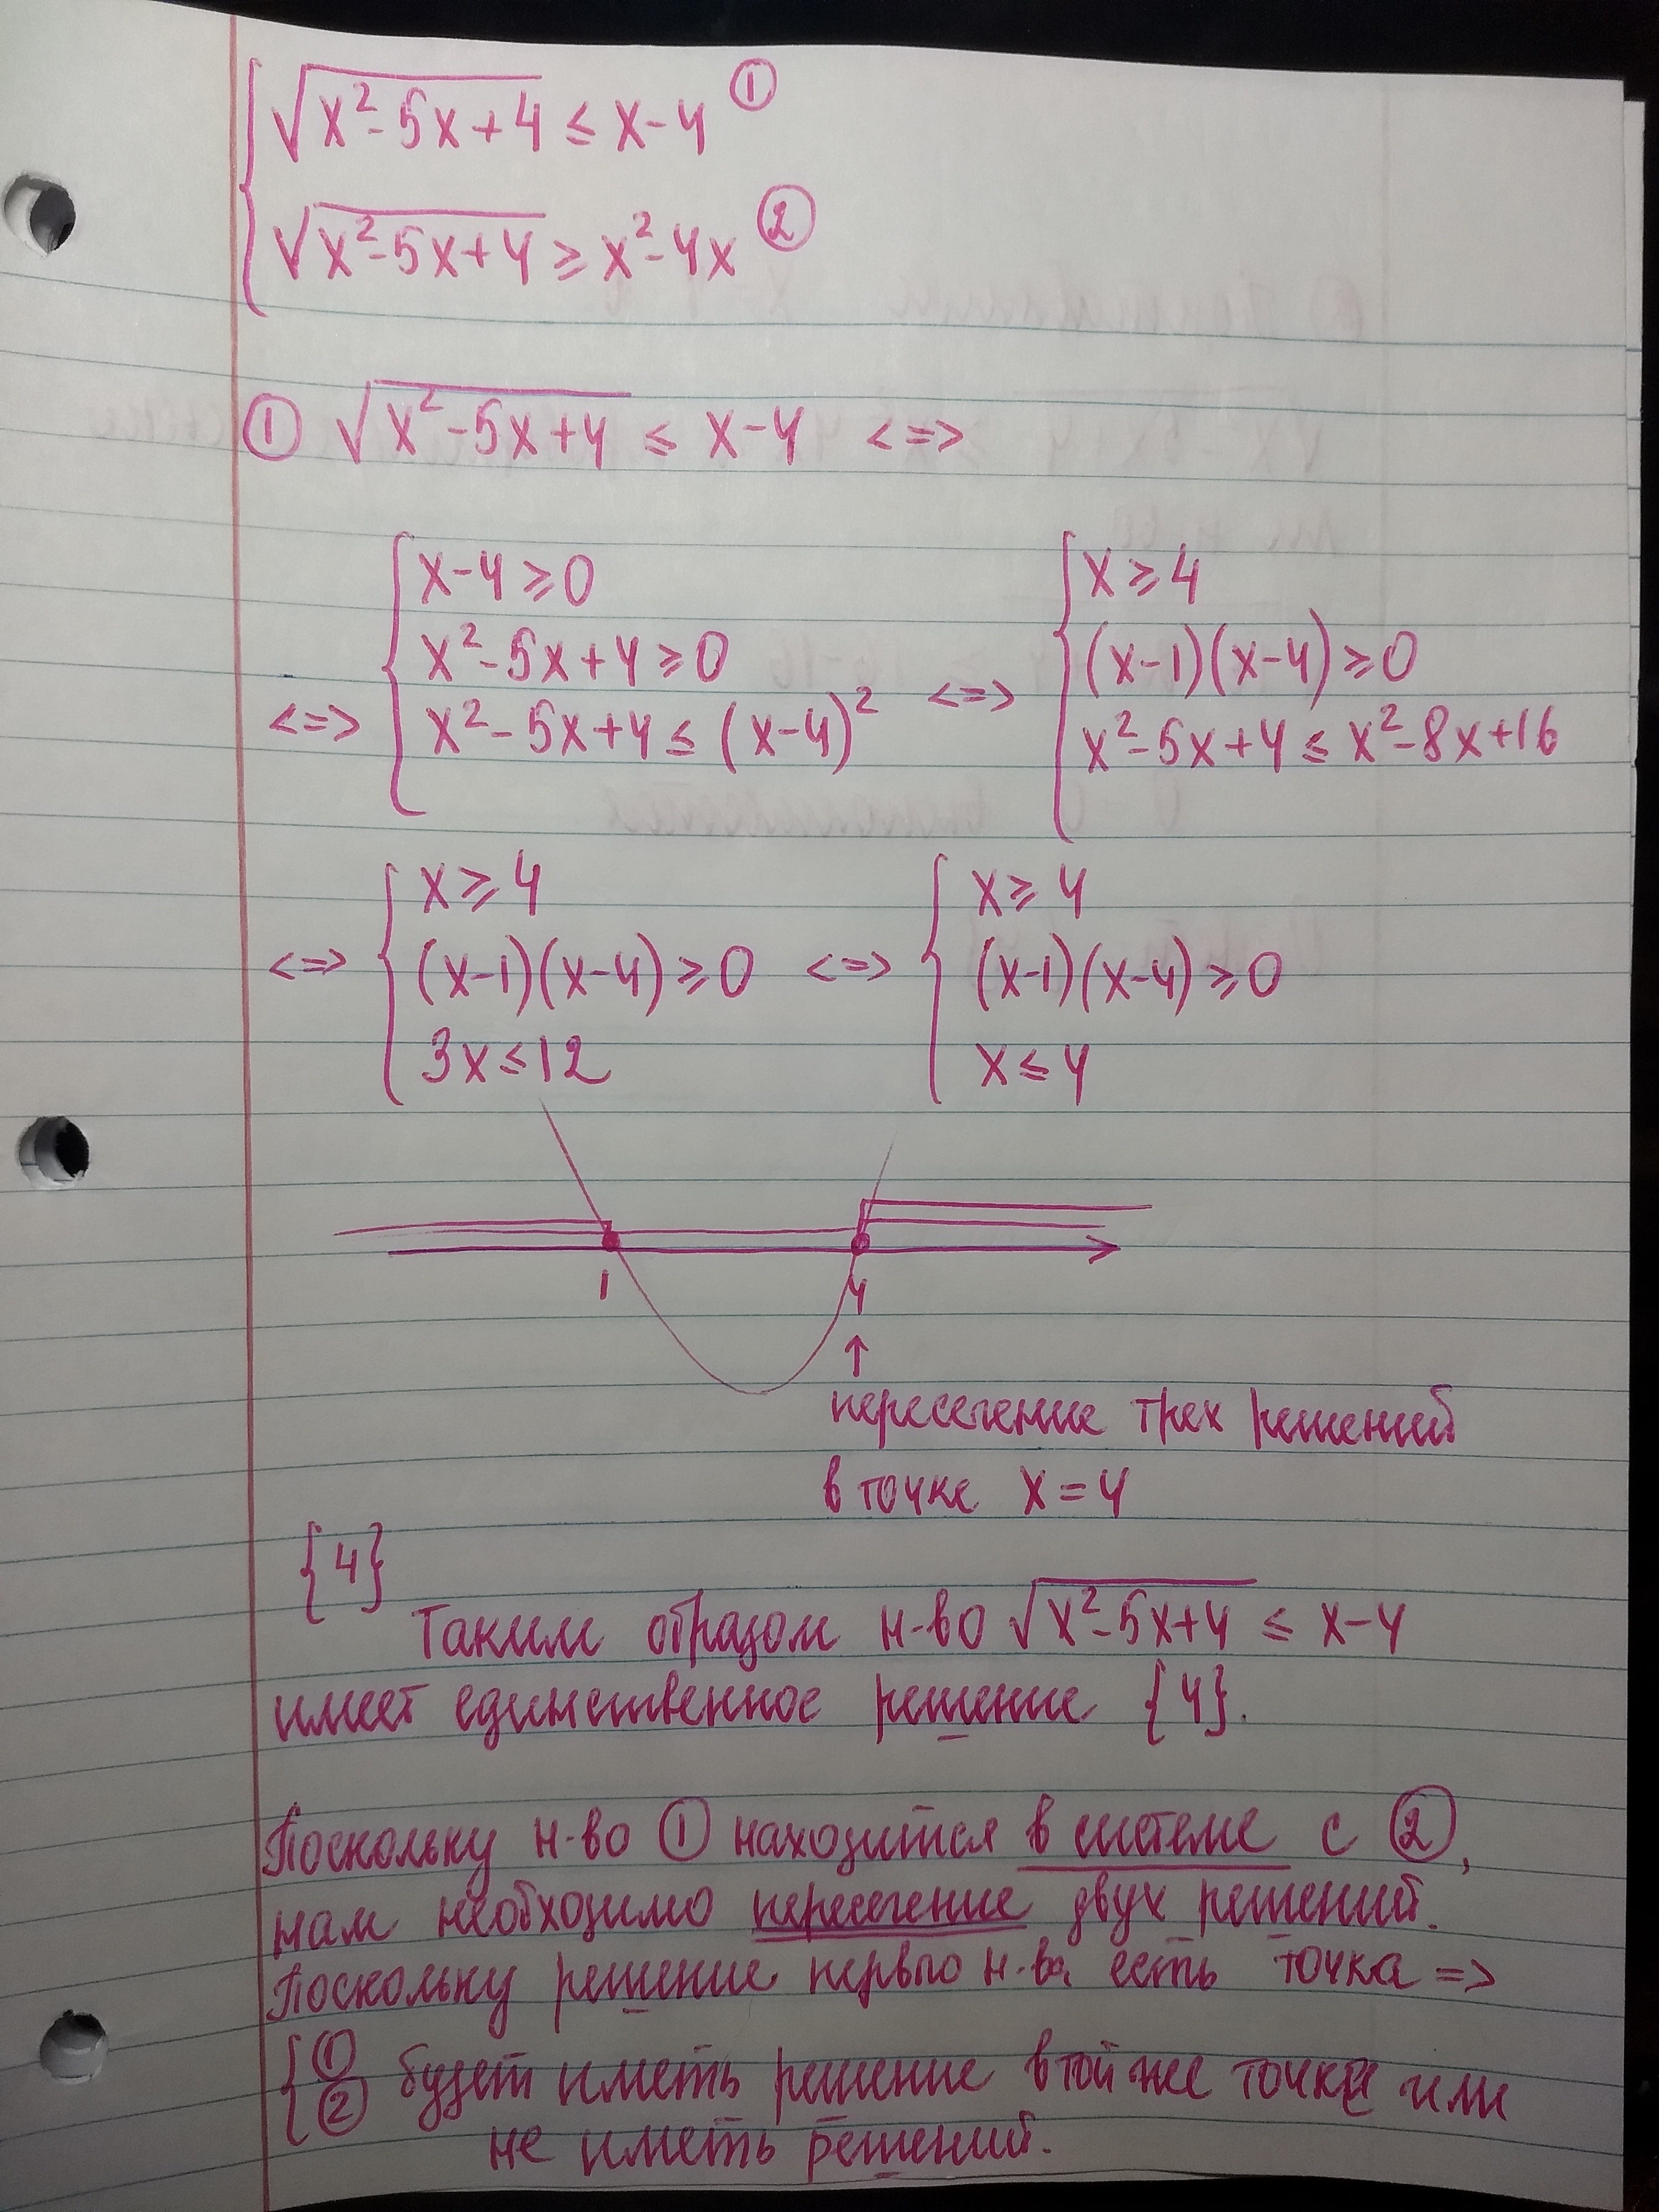 { √(x²-5x+4) ≤ x-4 ①
√(x²-5x+4) ≥ x²-4x ②
① √(x²-5x+4) ≤ x-4 <=>
<=> { x-4 ≥ 0
x²-5x+4 ≥ 0
x²-5x+4 ≤ (x-4)²
<=> { x ≥ 4
(x-1)(x-4) ≥ 0
x²-5x+4 ≤ x²-8x+16
<=> { x ≥ 4
(x-1)(x-4) ≥ 0
3x ≤ 12
<=> { x ≥ 4
(x-1)(x-4) ≥ 0
x ≤ 4
1 4
↑
пересечение трех решений
в точке x = 4
{4}
Таким образом н-во √(x²-5x+4) ≤ x-4
имеет единственное решение {4}.
Поскольку н-во ① находится в системе с ②,
нам необходимо пересечение двух решений.
Поскольку решение первого н-ва есть точка =>
{ ① ② будет иметь решение в той же точке или
не иметь решений.